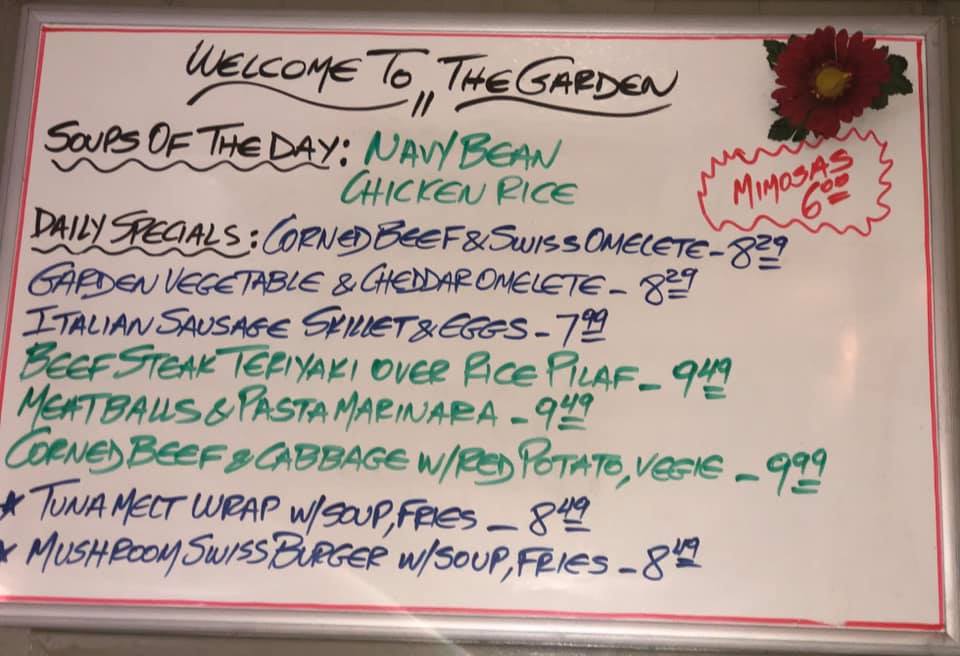 WELCOME TO THE GARDEN
SOUPS OF THE DAY: NAVY BEAN
CHICKEN RICE
MIMOSAS
6.00
DAILY SPECIALS: CORNED BEEF & SWISS OMELETE - 8.29
GARDEN VEGETABLE & CHEDDAR OMELETE - 8.29
ITALIAN SAUSAGE SKILLET & EGGS - 7.99
BEEF STEAK TERIYAKI OVER RICE PILAF - 9.49
MEATBALLS & PASTA MARINARA - 9.49
CORNED BEEF & CABBAGE W/RED POTATO, VEGIE - 9.99
* TUNA MELT WRAP W/SOUP, FRIES - 8.49
* MUSHROOM SWISS BURGER W/SOUP, FRIES - 8.49